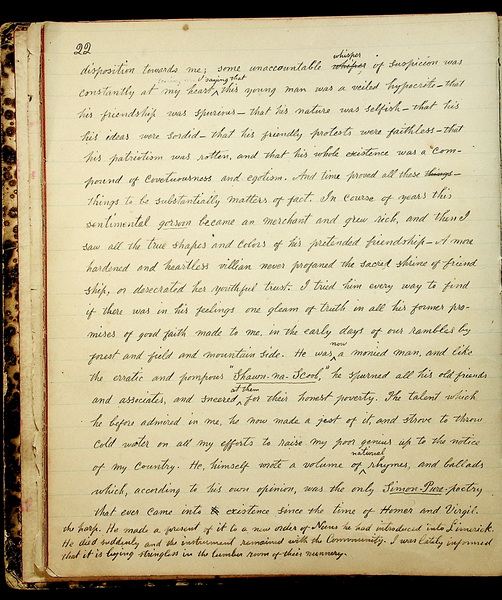 22
disposition towards me; some unaccountable whisper of suspicion was
constantly at my heart saying that this young man was a veiled hypocrite – that
his friendship was spurious – that his nature was selfish – that his
his ideas were sordid – that his friendly protests were faithless – that
his patriotism was rotten, and that his whole existence was a com-
pound of covetuousness and egotism. And time proved all these things
things to be substantially matters of fact. In course of years this
sentimental gorsoon became an merchant and grew rich, and then I
saw all the true shapes and colors of his pretended friendship – A more
hardened and heartless villian never profaned the sacred shrine of friend
ship, or desecrated her youthful trust. I tried him every way to find
if there was in his feelings one gleam of truth in all his former pro-
mises of good faith made to me, in the early days of our rambles by
forest and field and mountain side. He was now a monied man, and like
the erratic and pompous "Shawn-na-Scoob," he spurned all his old friends
and associates, and sneered at them for their honest poverty. The talent which
he before admired in me, he now made a jest of it, and strove to throw
cold water on all my efforts to raise my poor genius up to the notice
of my Country. He, himself wrote a volume of national rhymes, and ballads
which, according to his own opinion, was the only Simon-Pure-poetry
that ever came into existence since the time of Homer and Virgil.
the harp. He made a present of it to a new order of Nuns he had introduced into Limerick.
He died suddenly and the instrument remained with the Community. I was lately informed
that it is lying stringless in the lumber room of their nunnery.